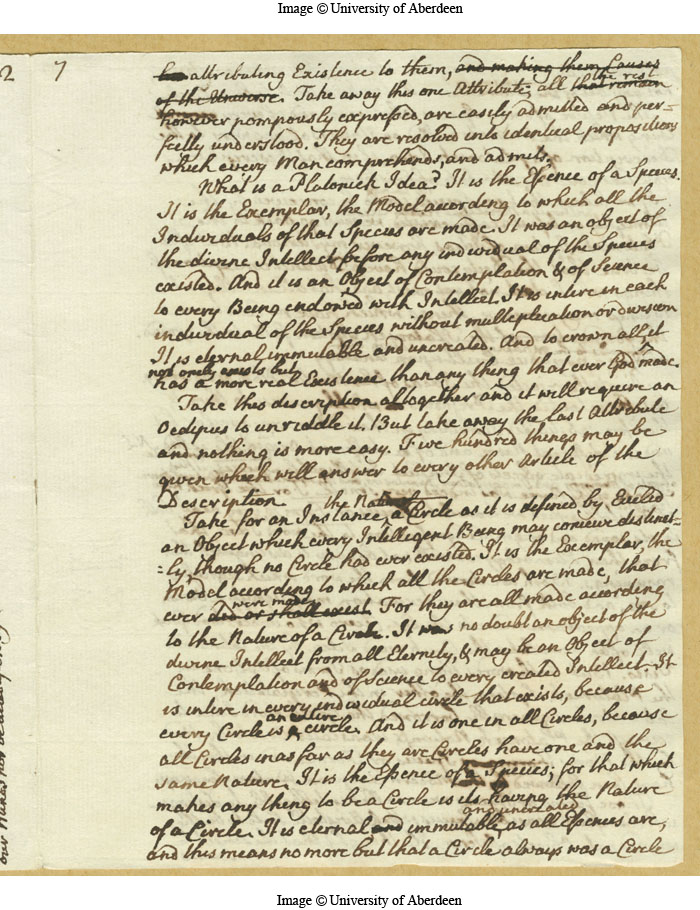 Image © University of Aberdeen
2 7
attributing Existence to them, and making them Causes
the rest
of the Universe. Take away this one Attribute, all that remain
however pompously expressed, are easily admitted and per=
fectly understood. They are resolved into identical propositions
which every Man comprehends, and admits.
What is a Platonick Idea? It is the Essence of a Species.
It is the Exemplar, the Model according to which all the
Individuals of that Species are made. It was an object of
the divine Intellect before any individual of the Species
existed. And it is an Object of Contemplation & of Science
to every Being endowed with Intellect. It is intire in each
individual of the Species without multiplication or division
It is eternal immutable and uncreated. And to crown all, it
not onely exists but
has a more real Existence than any thing that ever God made.
Take this description altogether and it will require an
Oedipus to unriddle it. But take away the last Attribute
and nothing is more easy. Five hundred things may be
given which will answer to every other Article of the
Description
the Nature of
Take for an Instance, a Circle as it is defined by Euclid
an Object which every Intelligent Being may concieve distinct-
=ly, though no Circle had ever existed. It is the Exemplar, the
Model according to which all the Circles are made, that
were made
ever did or shall exist. For they are all made according
to the Nature of a Circle. It was no doubt an object of the
divine Intellect from all Eternity, & may be an Object of
Contemplation and of Science to every created Intellect. It
is intire in every individual circle that exists, because
an entire
every Circle is a circle. And it is one in all Circles, because
all Circles in as far as they are Circles have one and the
same Nature. It is the Essence of a Species; for that which
makes any thing to be a Circle is its having the Nature
and uncreated
of a Circle. It is eternal and immutable, as all Essences are,
and this means no more but that a Circle always was a Circle
Image © University of Aberdeen